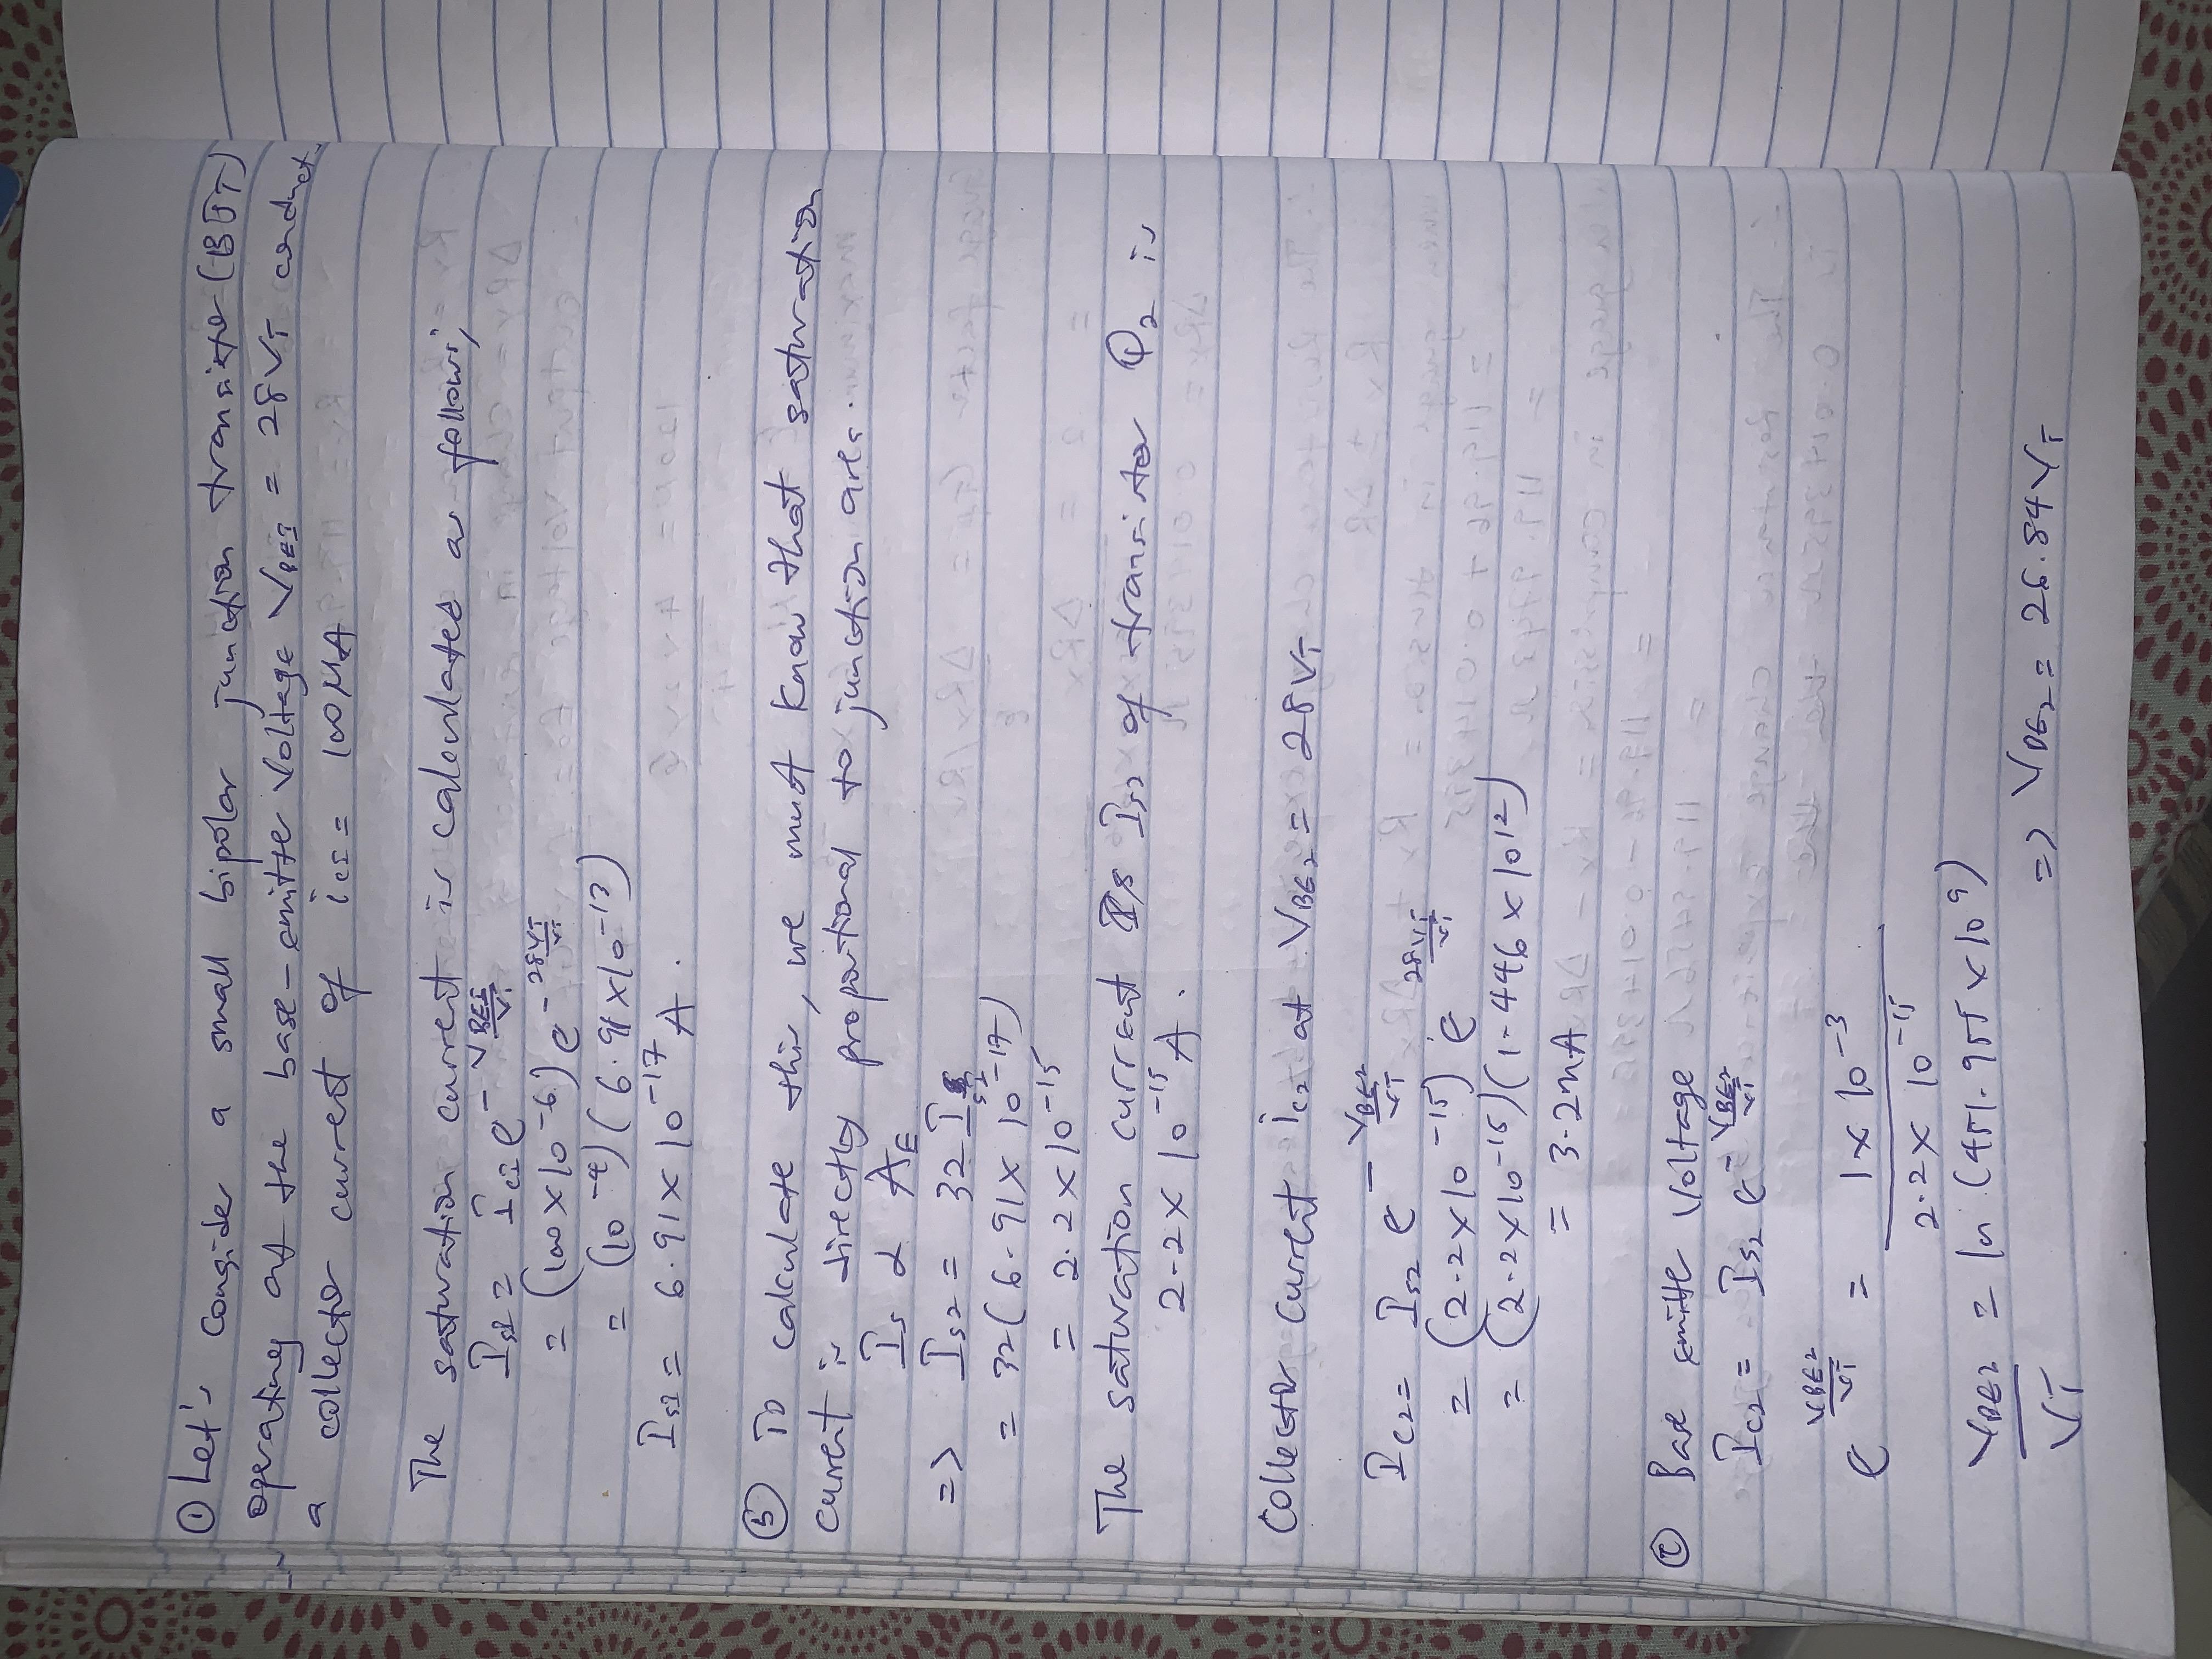 ① Let's conside a small bipolar junction transiste (BJT)
operating at the base-emitte Voltage VBE1 = 28VT conduct
a collector current of ic1 = 100μA
The saturation current is calculated as follows;
Is1 = ic1 e^-VBE1/VT
= (100 x 10^-6) e^-28VT/VT
= (10^-4) (6.91 x 10^-13)
Is1 = 6.91 x 10^-17 A.
ⓑ To calculate this, we must know that saturation
current is directly proportional to junction area.
Is α AE
=> Is2 = 32 Is2
= 32 (6.91 x 10^-17)
= 2.2 x 10^-15
The saturation current Is2 of transistor Q2 is
2.2 x 10^-15 A.
Collector current ic2 at VBE2 = 28VT
Ic2 = Is2 e^-VBE2/VT
= (2.2 x 10^-15) e^28VT/VT
= (2.2 x 10^-15) (1.446 x 10^12)
= 3.2mA
ⓒ Base emitte Voltage
Ic2 = Is2 e^-VBE2/VT
e^VBE2/VT = 1 x 10^-3 / 2.2 x 10^-15
VBE2/VT = ln (451.955 x 10^9)
=> VBE2 = 26.84VT